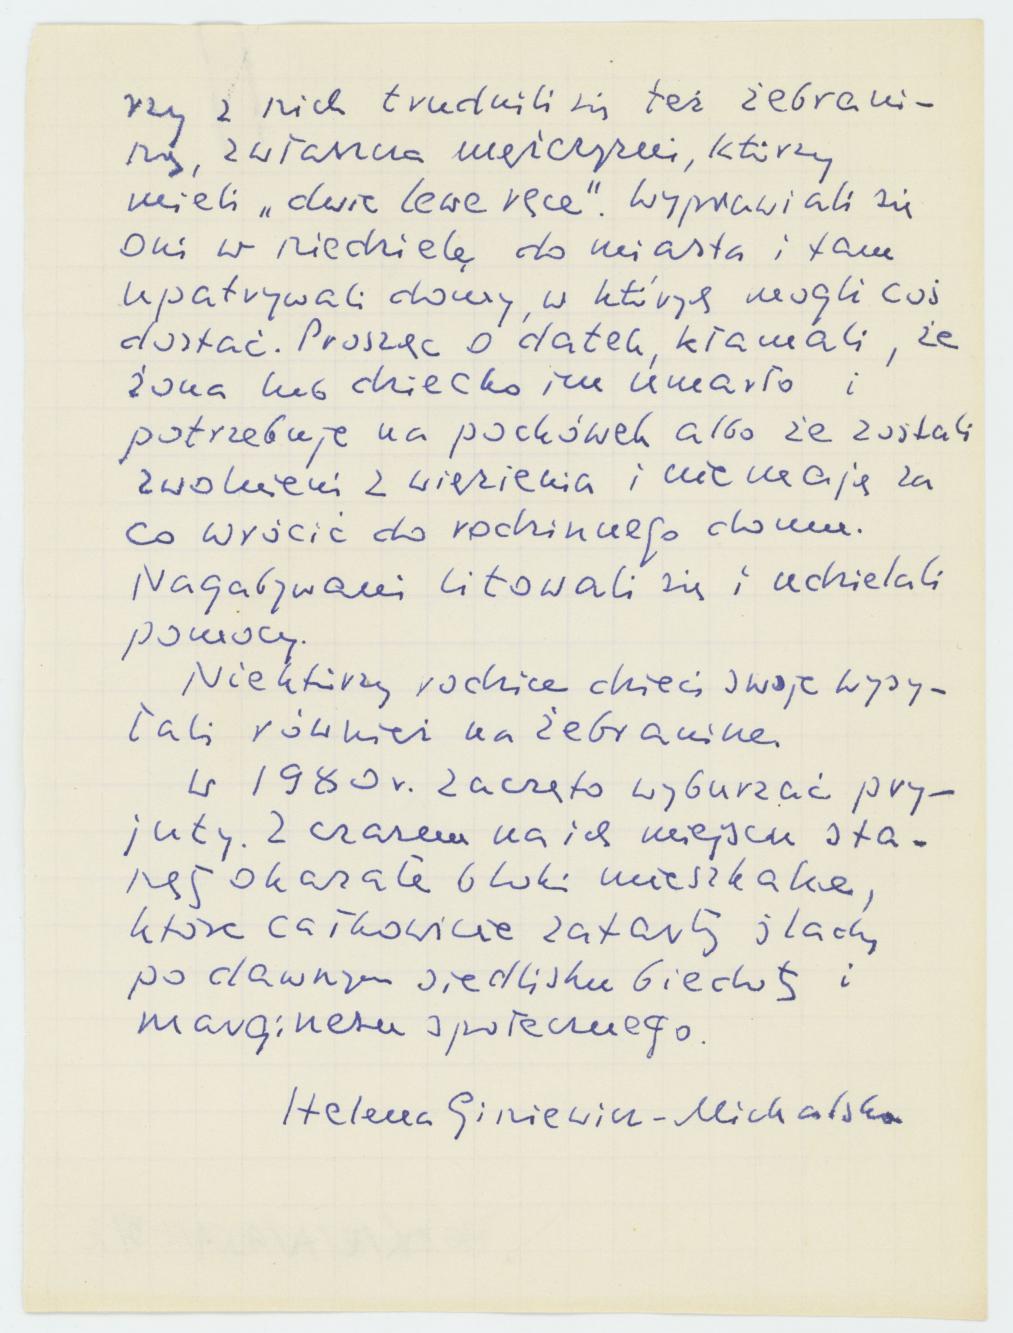 rzy z nich trudnili się też żebrani-
ną, zwłaszcza mężczyźni, którzy
mieli „dwie lewe ręce". Wyprawiali się
oni w niedzielę do miasta i tam
upatrywali domy, w których mogli coś
dostać. Prosząc o datek, kłamali, że
żona lub dziecko im umarło i
potrzebuje na pochówek albo że zostali
zwolnieni z więzienia i nie mają za
co wrócić do rodzinnego domu.
Nagabywani litowali się i udzielali
pomocy.
Niektórzy rodzice dzieci swoje wysy-
łali również na żebraninę.
W 1980 r. zaczęto wyburzać pry-
juty. Z czasem na ich miejscu sta-
nęły okazałe bloki mieszkalne,
które całkowicie zatarły ślady
po dawnym siedlisku biedoty i
marginesu społecznego.
Helena Giniewicz-Michalska